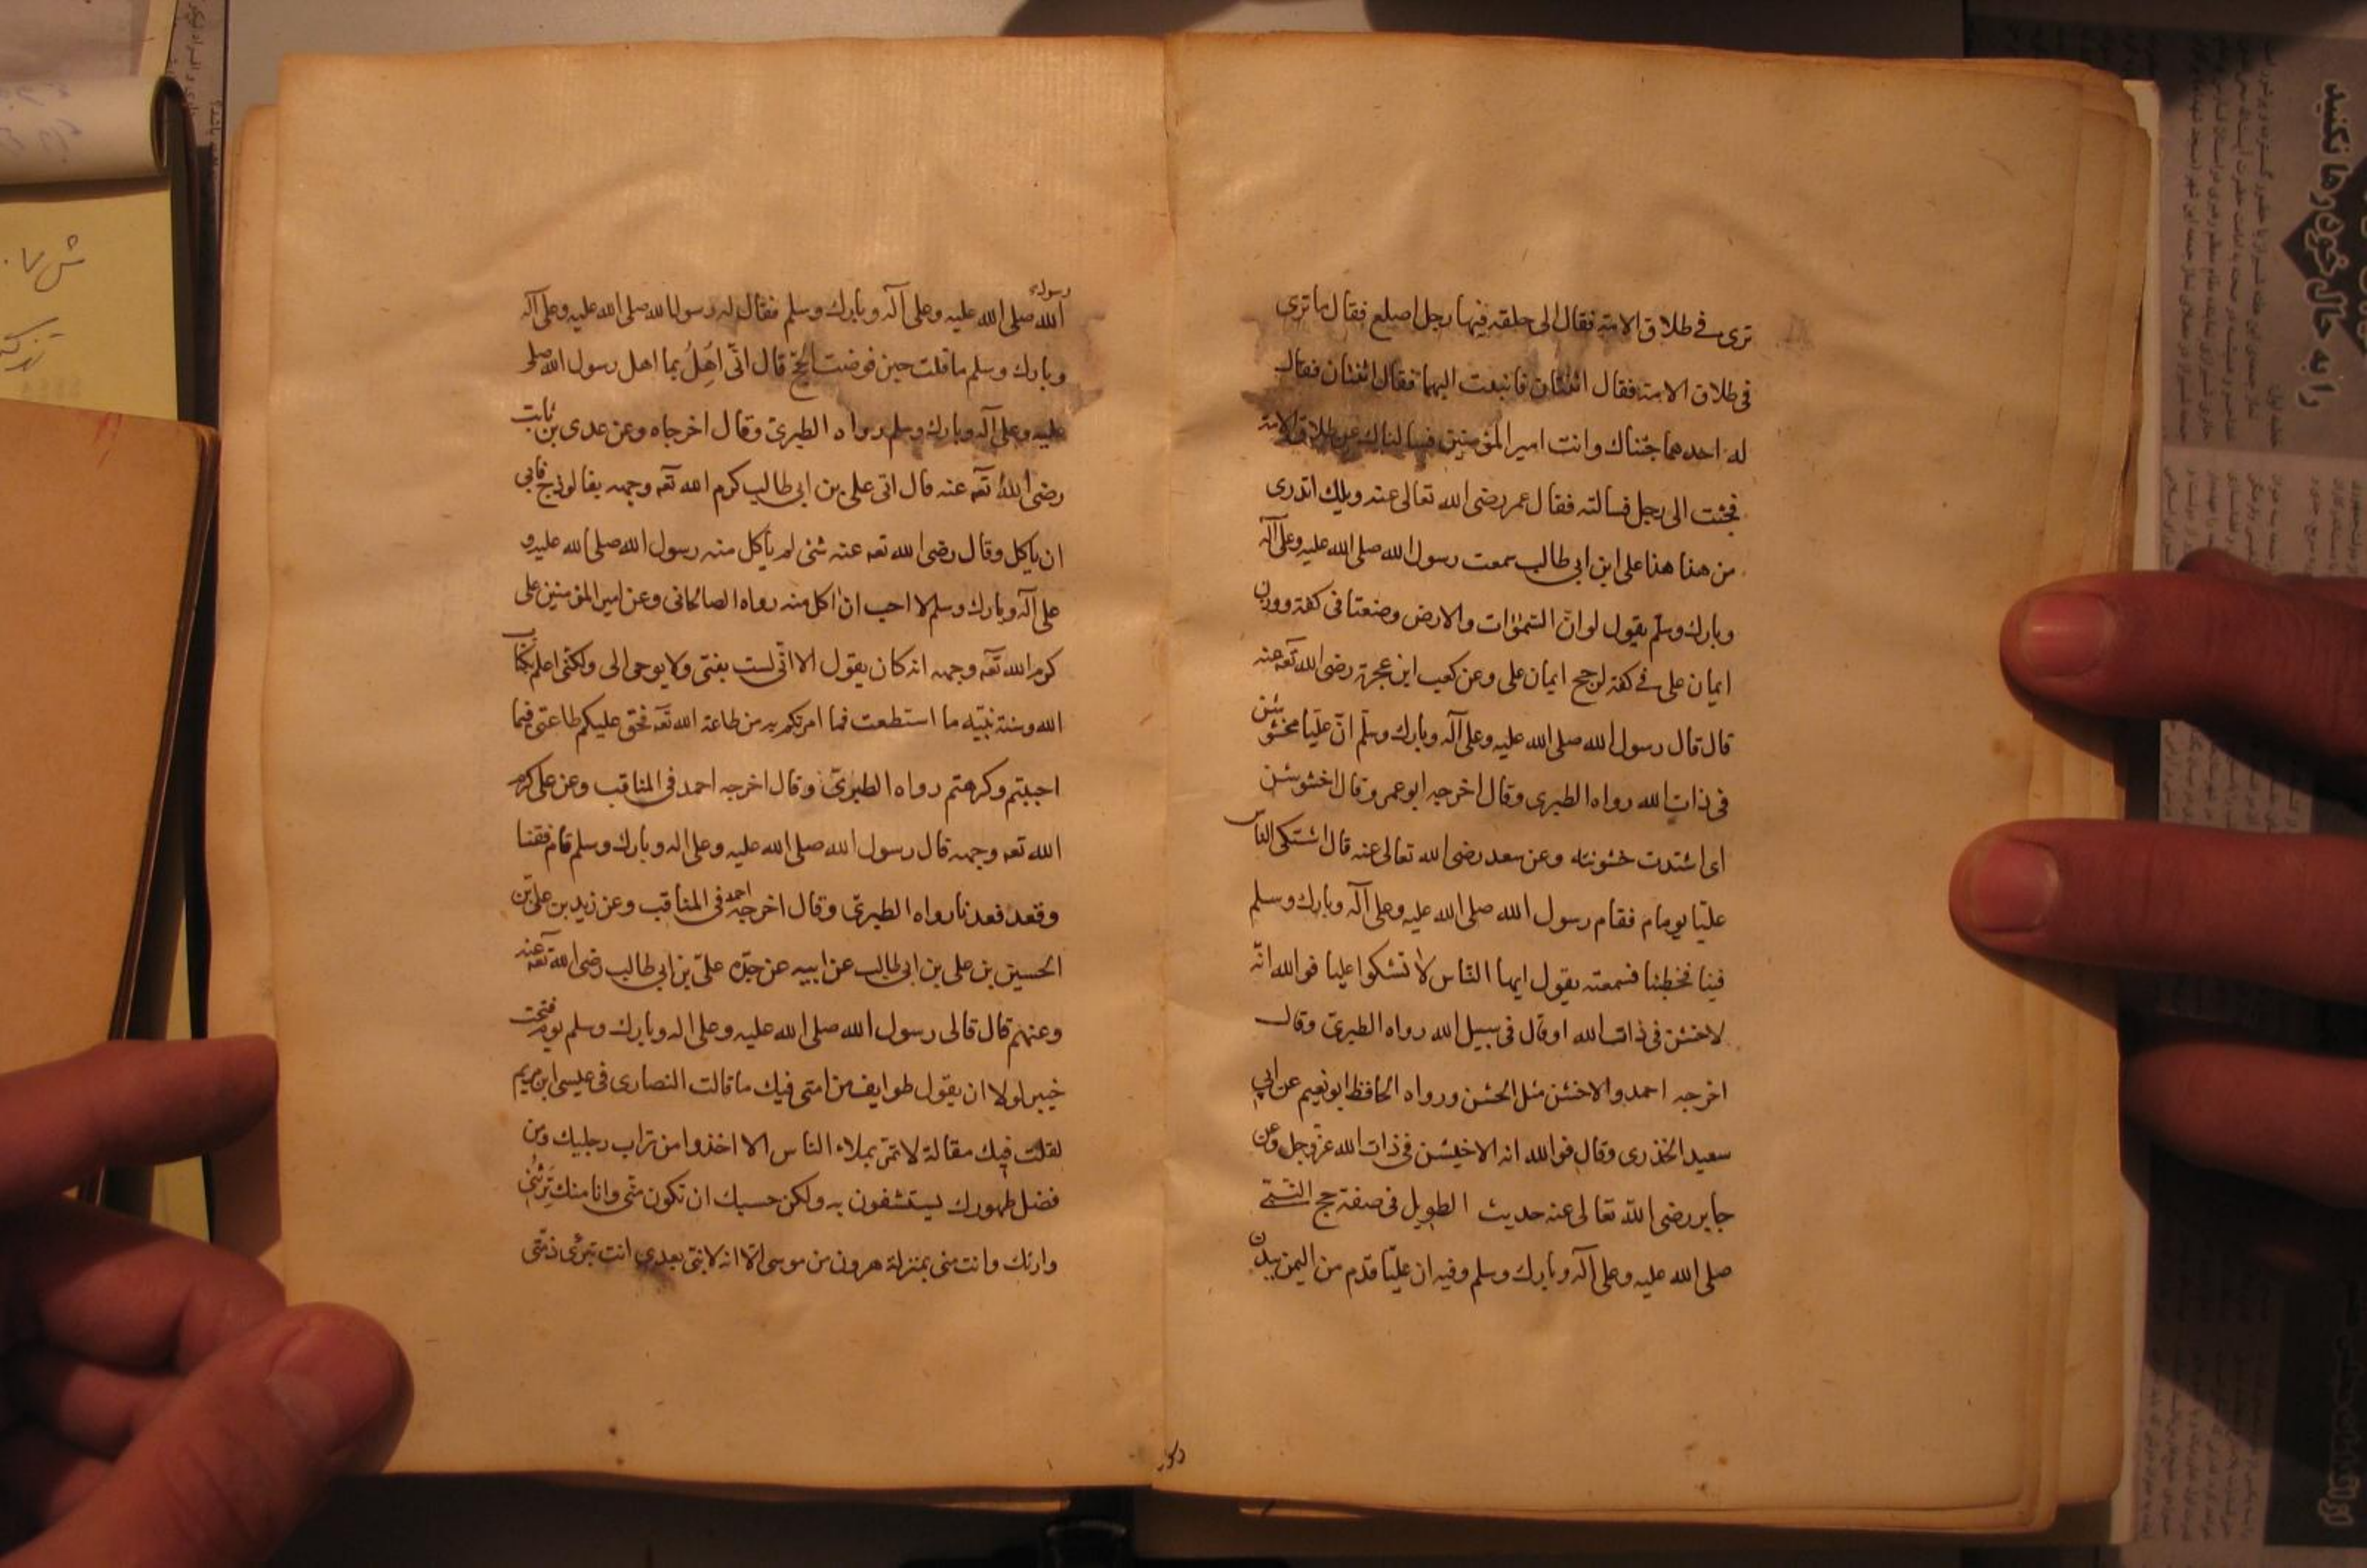 ترى في طلاق الامة فقال الى حلقه فيها رجل اصلع فقال ما ترى
في طلاق الامة فقال اثنتان فانبعت اليهما فقال اثنتان فقال
له احدهما جئناك وانت امير المؤمنين فسالناك عن طلاق الامة
فجئت الى رجل فسالته فقال عمر رضى الله تعالى عنه ويلك اتدرى
من هذا هذا على ابن ابى طالب سمعت رسول الله صلى الله عليه وعلى آله
وبارك وسلم يقول لو انّ السّموات والارض وضعتا فى كفة ووزن
ايمان على فے كفة لرجح ايمان على وعن كعب ابن عجرة رضى الله تعه عنه
قال قال رسول الله صلى الله عليه وعلى آله وبارك وسلّم انّ عليّا مخشوشن
فى ذات الله رواه الطبرى وقال اخرجه ابو عمر وقال اخشوشن
اى اشتدت خشونته وعن سعد رضى الله تعالى عنه قال اشتكى الناس
عليّا يوما فقام رسول الله صلى الله عليه وعلى آله وبارك وسلم
فينا فخطبنا فسمعته يقول ايها النّاس لا تشكوا عليا فوالله انّه
لاخشن فى ذات الله او قال فى سبيل الله رواه الطبرىّ وقال
اخرجه احمد والاخشن مثل الخشن ورواه الحافظ ابو نعيم عن ابى
سعيد الخذرى وقال فوالله انه الاخيشن فى ذات الله عزّ وجل وعن
جابر رضى اللّه تعالى عنه حديث الطويل فى صفة حج النّبىّ
صلى الله عليه وعلى آله وبارك وسلم وفيه ان عليّا قدم من اليمن ببدن
رسول
الله صلى الله عليه وعلى آله وبارك وسلم فقال له رسول الله صلى الله عليه وعلى آله
وبارك وسلم ما قلت حين فرضت الحجّ قال انّى اُهِلُّ بما اهل رسول الله صلى
عليه وعلى آله وبارك وسلم رواه الطبرىّ وقال اخرجاه وعن عدى بن ثابت
رضى اللهُ تعه عنه قال اتى على بن ابى طالب كرم الله تعه وجهه بفالوذج فابى
ان ياكل وقال رضى الله تعه عنه شئ لم يأكل منه رسول الله صلى الله عليه و
على آله وبارك وسلم لا احب ان اكل منه رواه الصالحانى وعن امير المؤمنين على
كرم الله تعه وجهه انه كان يقول الا انّى لست بنبى ولا يوحى الى ولكنّى اعلم بكتاب
الله وسنة نبيّه ما استطعت فما امرتكم به من طاعة الله تعه فحق عليكم طاعتى فيما
احببتم وكرهتم رواه الطبرىّ وقال اخرجه احمد فى المناقب وعن على كرم
الله تعه وجهه قال رسول الله صلى الله عليه وعلى اله وبارك وسلم قام فقمنا
وقعد فعدنا رواه الطبرىّ وقال اخرجه احمد فى المناقب وعن زيد بن علىّ بن
الحسين بن على بن ابى طالب عن ابيه عن جدّه علىّ بن ابى طالب رضى الله تعه عنه
وعنهم قال قال لى رسول الله صلى الله عليه وعلى اله وبارك وسلم يوم فتحت
خيبر لولا ان يقول طوايف من امتى فيك ما قالت النصارى فى عيسى ابن مريم
لقلت فيك مقالة لا تمرّ بملاء الناس الا اخذوا من تراب رجليك ومن
فضل طهورك يستشفون به ولكن حسبك ان تكون منّى وانا منك تَرِثُنى
وارثك وانت منى بمنزلة هرون من موسى الّا انه لا نبىّ بعدى انت تبرئ ذمّتى
را به حال خود رها نکنید